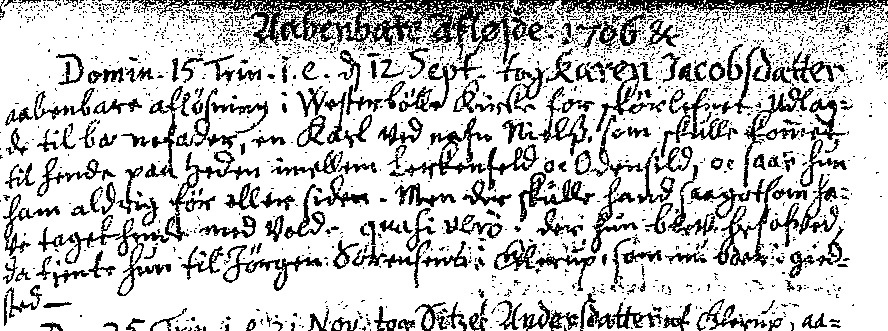 Aabenbare afløste. 1706 &
Domin. 15 Trin. i. e. d 12 Sept. tog Karen Jacobsdatter
aabenbare afløsning i Westerbølle Kircke for skörlefnet. Udlag-
de til barnefader, en Karl ved nafn Nielß, som skulle kommet
til hende paa heden imellem Lerckenfeld oc Odensild, oc saae hun
ham aldrig før eller siden. Men der skulle hand saa got som ha-
ve taget hende med Vold. quasi verò. der hun blev besofved,
da tiente hun til Jørgen Sørensens i Glerup, som nu boer i Gied-
sted —
25 Trin. i. e. 21 Nov. tog Sitzel Andersdatter af Glerup, aa-